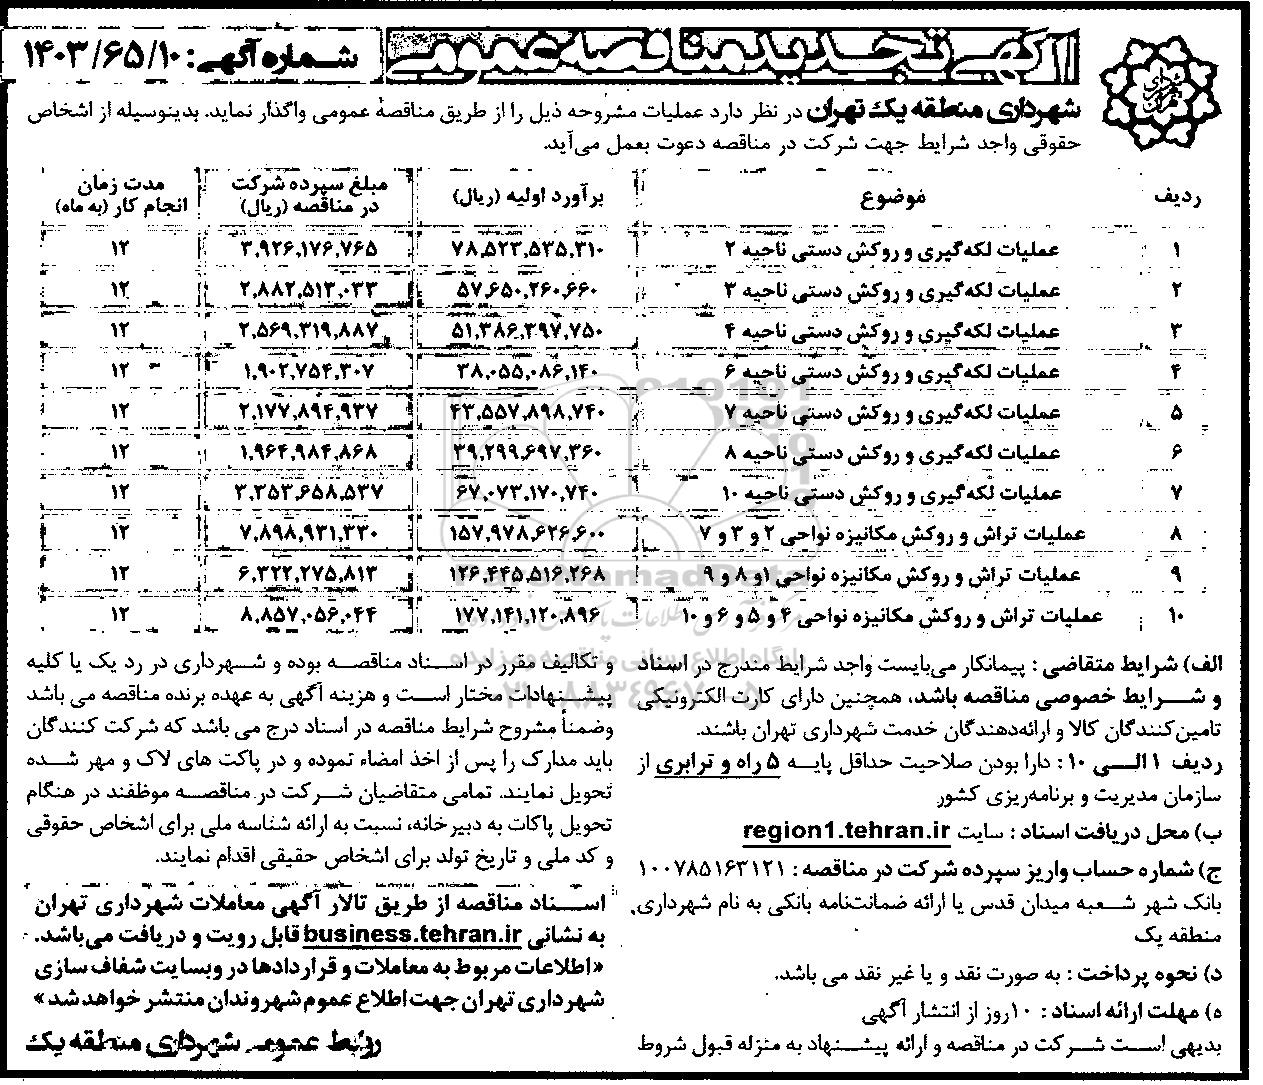 آگهی تجدید مناقصه عمومی
شماره آگهی: ۱۴۰۳/۶۵/۱۰
شهرداری منطقه یک تهران در نظر دارد عملیات مشروحه ذیل را از طریق مناقصهٔ عمومی واگذار نماید. بدینوسیله از اشخاص
حقوقی واجد شرایط جهت شرکت در مناقصه دعوت بعمل می‌آید.
ردیف موضوع برآورد اولیه (ریال) مبلغ سپرده شرکت در مناقصه (ریال) مدت زمان انجام کار (به ماه)
۱ عملیات لکه‌گیری و روکش دستی ناحیه ۲ ۷۸,۵۲۳,۵۳۵,۳۱۰ ۳,۹۲۶,۱۷۶,۷۶۵ ۱۲
۲ عملیات لکه‌گیری و روکش دستی ناحیه ۳ ۵۷,۶۵۰,۲۶۰,۶۶۰ ۲,۸۸۲,۵۱۳,۰۳۳ ۱۲
۳ عملیات لکه‌گیری و روکش دستی ناحیه ۴ ۵۱,۳۸۶,۳۹۷,۷۵۰ ۲,۵۶۹,۳۱۹,۸۸۷ ۱۲
۴ عملیات لکه‌گیری و روکش دستی ناحیه ۶ ۳۸,۰۵۵,۰۸۶,۱۴۰ ۱,۹۰۲,۷۵۴,۳۰۷ ۱۲
۵ عملیات لکه‌گیری و روکش دستی ناحیه ۷ ۴۳,۵۵۷,۸۹۸,۷۴۰ ۲,۱۷۷,۸۹۴,۹۳۷ ۱۲
۶ عملیات لکه‌گیری و روکش دستی ناحیه ۸ ۳۹,۲۹۹,۶۹۷,۳۶۰ ۱,۹۶۴,۹۸۴,۸۶۸ ۱۲
۷ عملیات لکه‌گیری و روکش دستی ناحیه ۱۰ ۶۷,۰۷۳,۱۷۰,۷۴۰ ۳,۳۵۳,۶۵۸,۵۳۷ ۱۲
۸ عملیات تراش و روکش مکانیزه نواحی ۲ و ۳ و ۷ ۱۵۷,۹۷۸,۶۲۶,۶۰۰ ۷,۸۹۸,۹۳۱,۳۳۰ ۱۲
۹ عملیات تراش و روکش مکانیزه نواحی ۱و ۸ و ۹ ۱۲۶,۴۴۵,۵۱۶,۲۶۸ ۶,۳۲۲,۲۷۵,۸۱۳ ۱۲
۱۰ عملیات تراش و روکش مکانیزه نواحی ۴ و ۵ و ۶ و ۱۰ ۱۷۷,۱۴۱,۱۲۰,۸۹۶ ۸,۸۵۷,۰۵۶,۰۴۴ ۱۲
الف) شرایط متقاضی : پیمانکار می‌بایست واجد شرایط مندرج در اسناد
و شرایط خصوصی مناقصه باشد، همچنین دارای کارت الکترونیکی
تامین‌کنندگان کالا و ارائه‌دهندگان خدمت شهرداری تهران باشند.
ردیف ۱ الی ۱۰ : دارا بودن صلاحیت حداقل پایه ۵ راه و ترابری از
سازمان مدیریت و برنامه‌ریزی کشور
ب) محل دریافت اسناد : سایت region1.tehran.ir
ج) شماره حساب واریز سپرده شرکت در مناقصه : ۱۰۰۷۸۵۱۶۳۱۲۱
بانک شهر شعبه میدان قدس یا ارائه ضمانت‌نامه بانکی به نام شهرداری
منطقه یک
د) نحوه پرداخت : به صورت نقد و یا غیر نقد می باشد.
ه) مهلت ارائه اسناد : ۱۰روز از انتشار آگهی
بدیهی است شرکت در مناقصه و ارائه پیشنهاد به منزله قبول شروط
و تکالیف مقرر در اسناد مناقصه بوده و شهرداری در رد یک یا کلیه
پیشنهادات مختار است و هزینه آگهی به عهده برنده مناقصه می باشد
وضمناً مشروح شرایط مناقصه در اسناد درج می باشد که شرکت کنندگان
باید مدارک را پس از اخذ امضاء نموده و در پاکت های لاک و مهر شده
تحویل نمایند. تمامی متقاضیان شرکت در مناقصه موظفند در هنگام
تحویل پاکات به دبیرخانه، نسبت به ارائه شناسه ملی برای اشخاص حقوقی
و کد ملی و تاریخ تولد برای اشخاص حقیقی اقدام نمایند.
اسناد مناقصه از طریق تالار آگهی معاملات شهرداری تهران
به نشانی business.tehran.ir قابل رویت و دریافت می‌باشد.
«اطلاعات مربوط به معاملات و قراردادها در وبسایت شفاف سازی
شهرداری تهران جهت اطلاع عموم شهروندان منتشر خواهد شد»
روابط عمومی شهرداری منطقه یک